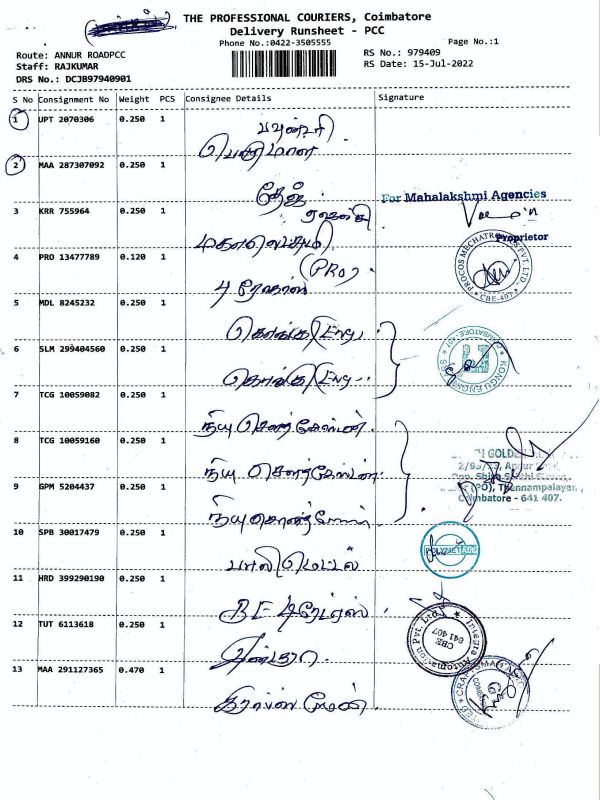 THE PROFESSIONAL COURIERS, Coimbatore
Delivery Runsheet - PCC
Phone No.:0422-3505555
Page No.:1
Route: ANNUR ROADPCC
Staff: RAJKUMAR
DRS No.: DCJB97940901
RS No.: 979409
RS Date: 15-Jul-2022
S No Consignment No Weight PCS Consignee Details Signature
1 UPT 2070306 0.250 1
பெருமாள்
2 MAA 287307092 0.250 1
தேஜ்
For Mahalakshmi Agencies
3 KRR 755964 0.250 1
Proprietor
மகாலெட்சுமி
4 PRO 13477789 0.120 1 (PRO)
PROCOS MECHATRONICS PVT. LTD. * CBE-407 *
5 MDL 8245232 0.250 1
கொங்கு (Eng.
6 SLM 299404560 0.250 1
கொங்கு (Eng..
7 TCG 10059082 0.250 1
நியு கோல்டன்
8 TCG 10059160 0.250 1
நியு
9 GPM 5204437 0.250 1
Coimbatore - 641 407.
நியு
10 SPB 30017479 0.250 1
பாலி மெட்டல்
11 HRD 399290190 0.250 1
BE டிரேடர்ஸ்
12 TUT 6113618 0.250 1
CBE 641 407
13 MAA 291127365 0.470 1